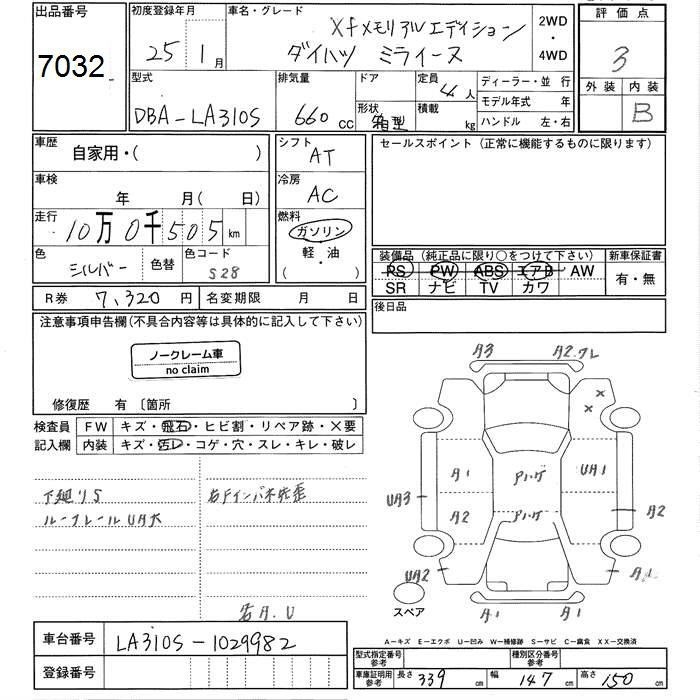 出品番号
7032
初度登録年月
25 1 月
車名・グレード
Xfメモリアルエディション
ダイハツ ミライース
2WD
・
4WD
評価点
3
外装 内装
B
型式
DBA-LA310S
排気量
660 cc
ドア
形状
箱型
定員
4人
積載
kg
ディーラー・並行
モデル年式 年
ハンドル 左・右
車歴
自家用・( )
シフト
AT
セールスポイント(正常に機能するものに限ります)
車検
年 月( 日)
冷房
AC
走行
10万0千505km
燃料
ガソリン
軽・油
( )
色
シルバー
色替
色コード
S28
装備品(純正品に限り○をつけて下さい)
PS PW ABS エアB AW
SR ナビ TV カワ
新車保証書
有・無
R券 7,320円
名変期限 月 日
後日品
注意事項申告欄(不具合内容等は具体的に記入して下さい)
ノークレーム車
no claim
修復歴 有〔箇所 〕
検査員
記入欄
FW キズ・飛石・ヒビ割・リペア跡・X要
内装 キズ・汚レ・コゲ・穴・スレ・キレ・破レ
下廻りS
ルーフレールUA大
A3
A1
A1
UA1
Aハゲ
UA3
A2
Aハゲ
A2
UA2
A1
A1
スペア
A-キズ E-エクボ U-凹み W-補修跡 S-サビ C-腐食 XX-交換済
車台番号
LA310S-1029982
登録番号
型式指定番号
参考
種別区分番号
参考
車庫証明用
参考
長さ 339 cm
幅 147 cm
高さ 150 cm